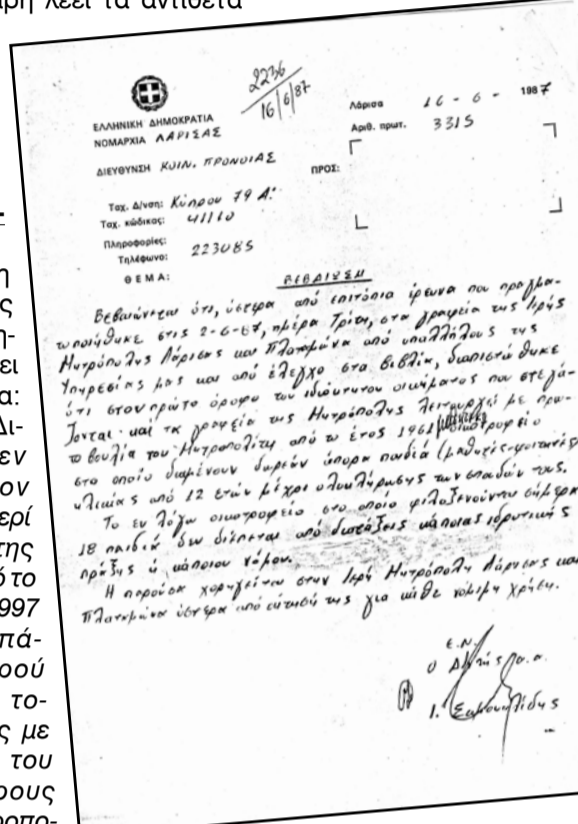 λέει τα αντίθετα
2236
16/6/87
ΕΛΛΗΝΙΚΗ ΔΗΜΟΚΡΑΤΙΑ
ΝΟΜΑΡΧΙΑ ΛΑΡΙΣΑΣ
ΔΙΕΥΘΥΝΣΗ ΚΟΙΝ. ΠΡΟΝΟΙΑΣ
Λάρισα 16 - 6 - 1987
Αριθ. πρωτ. 3315
ΠΡΟΣ:
Ταχ. Δ/νση: Κύπρου 79 Α:
Ταχ. κώδικας: 41110
Πληροφορίες:
Τηλέφωνο: 223085
ΘΕΜΑ:
ΒΕΒΑΙΩΣΗ
Βεβαιώνεται ότι, ύστερα από επιτόπια έρευνα που πραγμα-
τοποιήθηκε στις 2-6-87, ημέρα Τρίτη, στα γραφεία της Ιερής
Μητρόπολης Λάρισας και Πλαταμώνα από υπαλλήλους της
Υπηρεσίας μας και από έλεγχο στα βιβλία, διαπιστώθηκε
ότι στον πρώτο όροφο του ιδιόκτητου οικήματος που στεγά-
ζονται και τα γραφεία της Μητρόπολης λειτουργεί με πρω-
τοβουλία του Μητροπολίτη από το έτος 1961 οικοτροφείο
στο οποίο διαμένουν δωρεάν άπορα παιδιά (μαθητές-φοιτητές)
ηλικίας από 12 ετών μέχρι ολοκλήρωσης των σπουδών τους.
Το εν λόγω οικοτροφείο στο οποίο φιλοξενούνται σήμερα
18 παιδιά δεν διέπεται από διατάξεις κάποιας ιδρυτικής
πράξης ή κάποιου νόμου.
Η παρούσα χορηγείται στην Ιερή Μητρόπολη Λάρισας και
Πλαταμώνα ύστερα από αίτησή της για κάθε νόμιμη χρήση.
Ε.Ν.
Ο Δ/ντής α.α.
Ι. Σαμουηλίδης
η
ς
η-
ει
α:
Δι-
εν
ον
ερί
της
ό το
997
πά-
ρού
το-
ς με
του
ρους
ροπο-